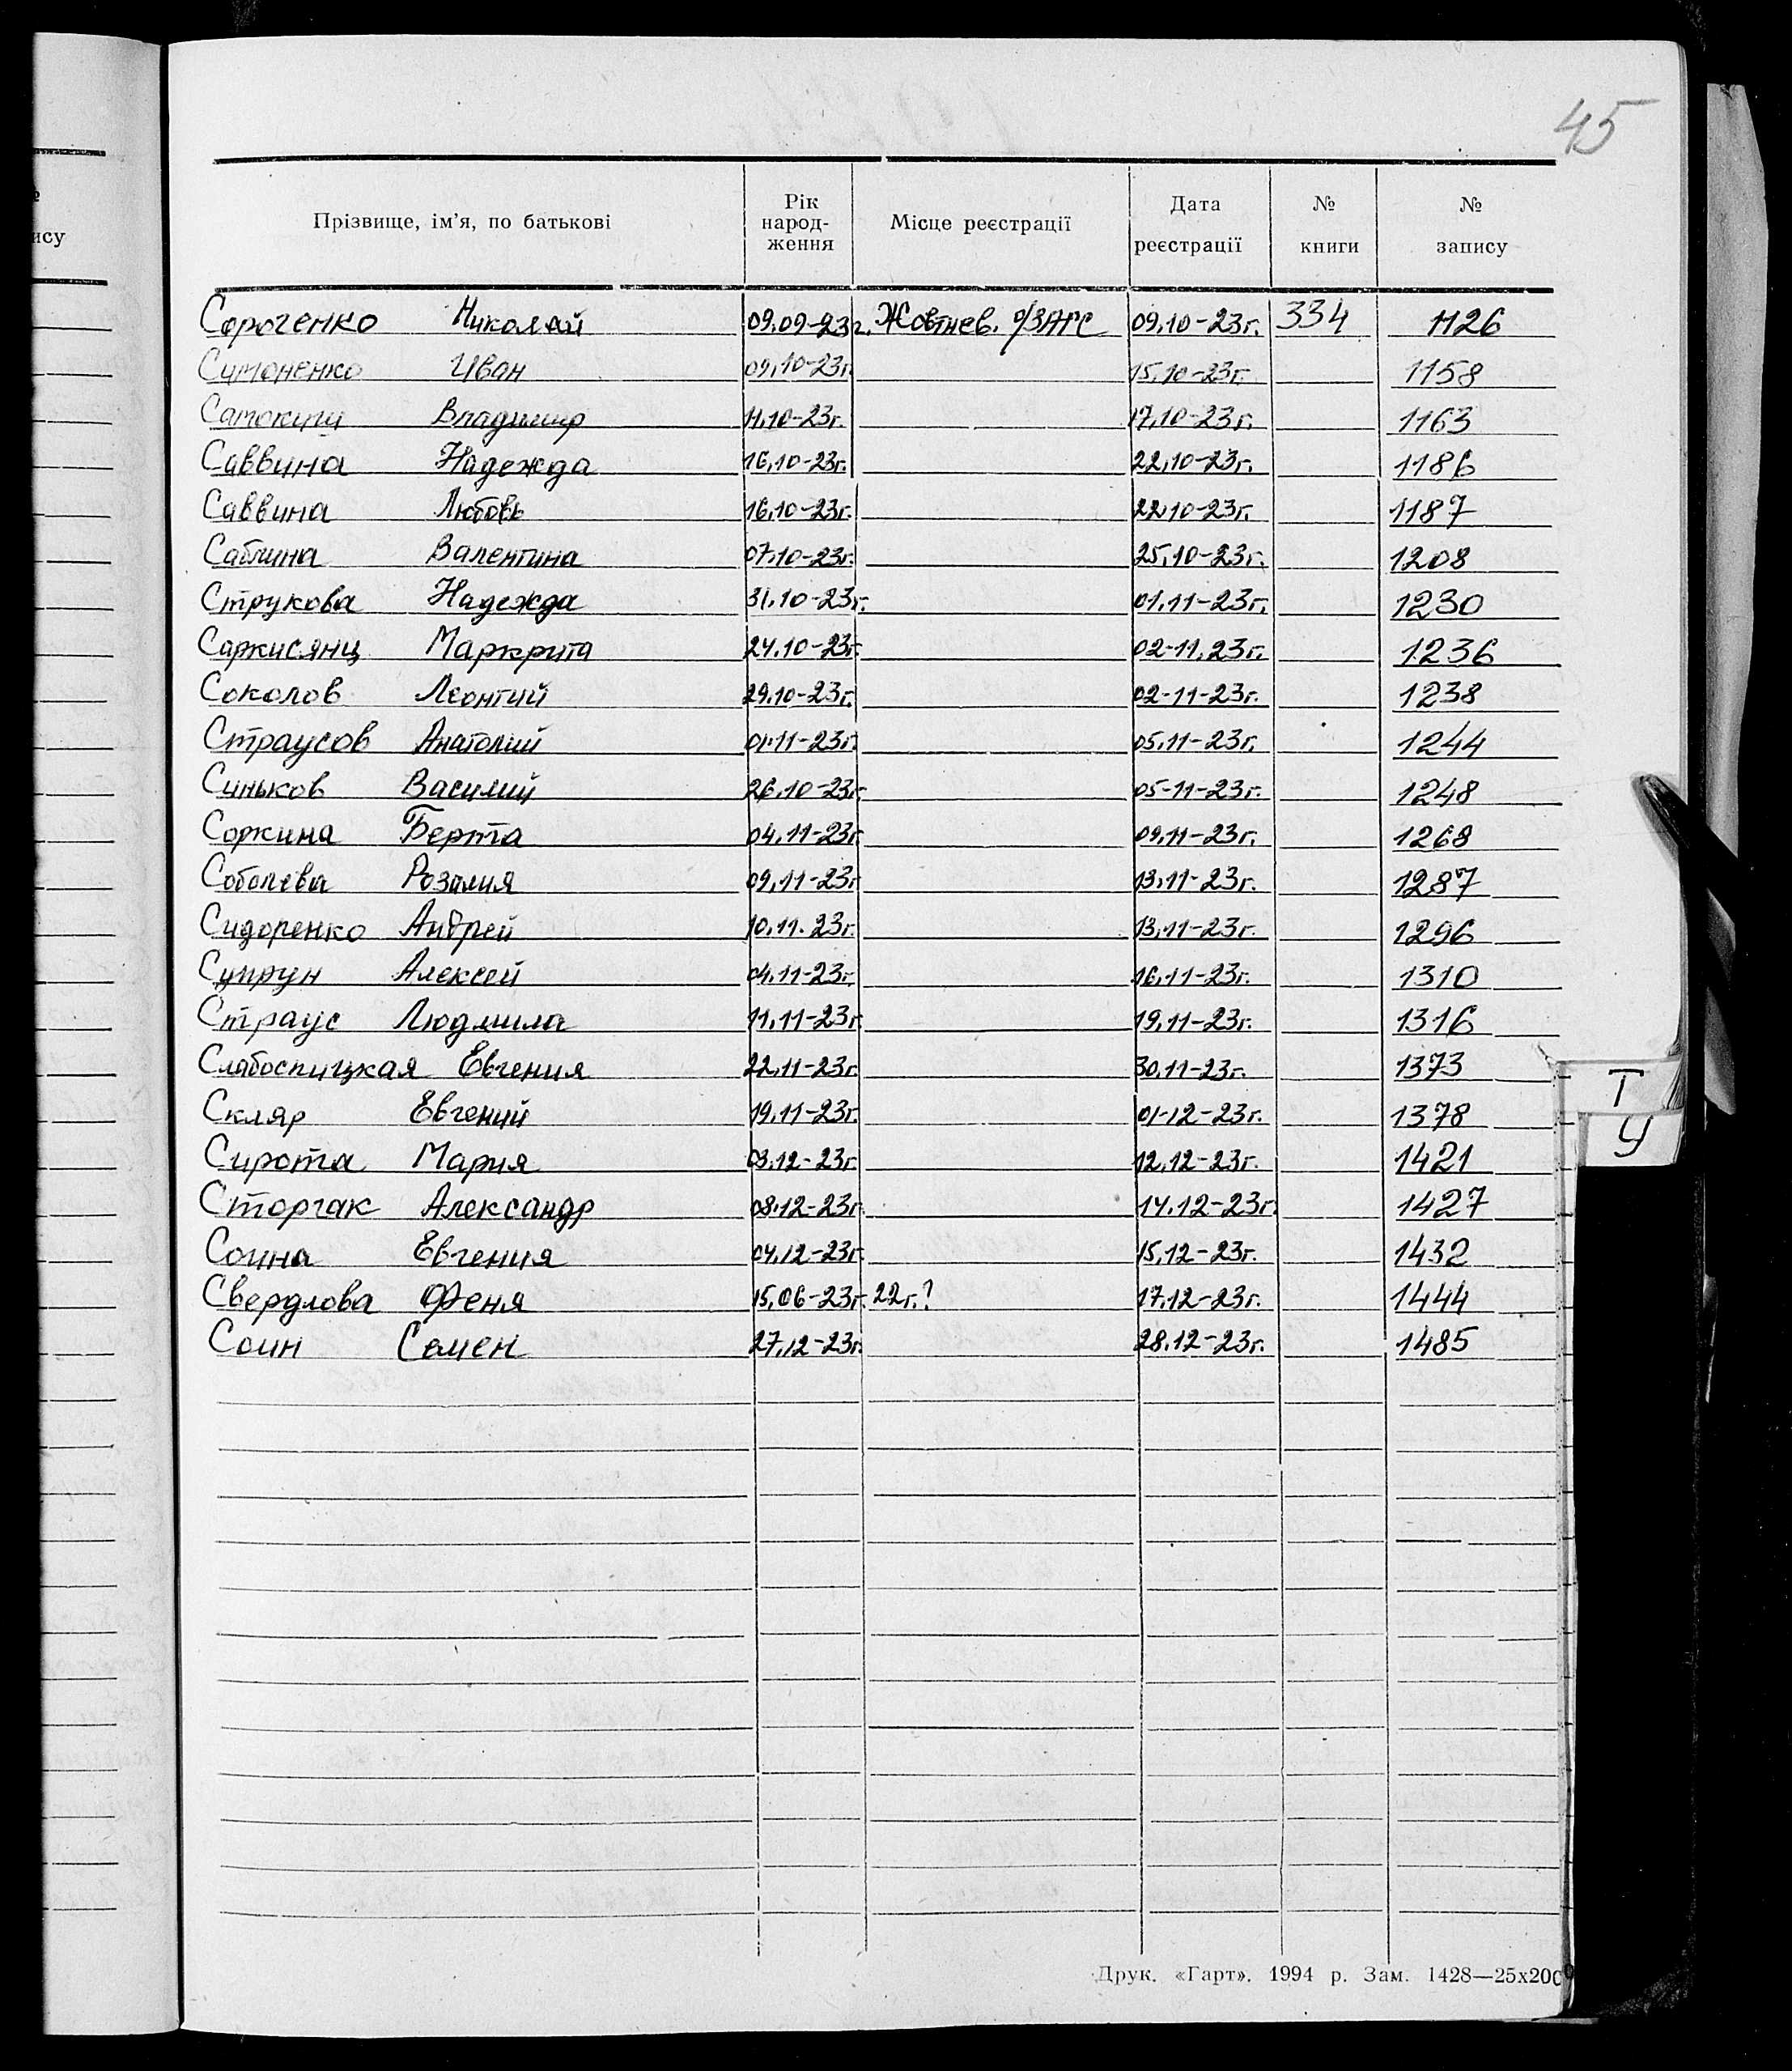 45
№
ису
Прізвище, ім'я, по батькові
Рік
народ-
ження
Місце реєстрації
Дата
реєстрації
№
книги
№
запису
Сороченко Николай 09.09-23г. Жовтнев. о/ЗАГС 09.10-23г. 334 1126
Симоненко Иван 09.10-23г. 15.10-23г. 1158
Владимир 11.10-23г. 17.10-23г. 1163
Саввина Надежда 16.10-23г. 22.10-23г. 1186
Саввина Любовь 16.10-23г. 22.10-23г. 1187
Саблина Валентина 07.10-23г. 25.10-23г. 1208
Струкова Надежда 31.10-23г. 01.11-23г. 1230
Саркисянц Маркрита 24.10-23г. 02-11.23г. 1236
Соколов Леонтий 29.10-23г. 02-11-23г. 1238
Страусов Анатолий 01.11-23г. 05.11-23г. 1244
Синьков Василий 26.10-23г. 05-11-23г. 1248
Соркина Берта 04.11-23г. 09.11-23г. 1268
Соболева Розалия 09.11-23г. 13.11-23г. 1287
Сидоренко Андрей 10.11.23г. 13.11-23г. 1296
Супрун Алексей 04.11-23г. 16.11-23г. 1310
Страус Людмила 11.11-23г. 19.11-23г. 1316
Слабоспицкая Евгения 22.11-23г. 30.11-23г. 1373
Скляр Евгений 19.11-23г. 01-12-23г. 1378
Сирота Мария 03.12-23г. 12.12-23г. 1421
Сторчак Александр 08.12-23г. 14.12-23г. 1427
Соина Евгения 04.12-23г. 15.12-23г. 1432
Свердлова Феня 15.06-23г. 22г.? 17.12-23г. 1444
Соин Семен 27.12-23г. 28.12-23г. 1485
Т
У
Друк. «Гарт». 1994 р. Зам. 1428—25х200